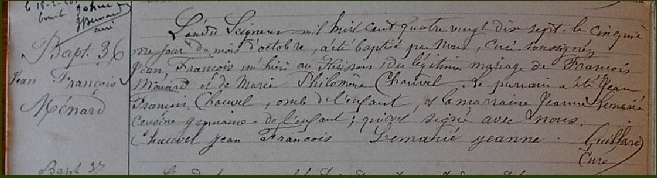 Bapt. 36
Jean François
Ménard
L'an du Seigneur mil huit cent quatre vingt dix sept, le cinquiè
me jour du mois d'octobre, a été baptisé par Nous, Curé soussigné
Jean, François né hier au du légitime mariage de François
Ménard et de Marie Philomène Chauvel. Le parrain a été Jean
François Chauvel, oncle de l'enfant, et la marraine Jeanne Lemarié
cousine germaine de l'enfant; qui ont signé avec nous.
Chauvel Jean François Lemarié Jeanne. Guillard
Curé
Bapt. 37